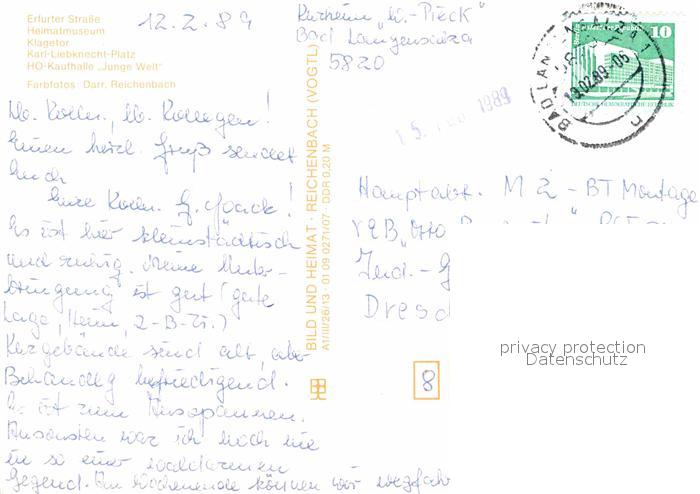 Erfurter Straße
Heimatmuseum
Klagetor
Karl-Liebknecht-Platz
HO-Kaufhalle „Junge Welt"
Farbfotos Darr, Reichenbach
12.2.89
Kurheim „W.-Pieck"
Bad Langensalza
5820
10
DEUTSCHE DEMOKRATISCHE REPUBLIK
BAD LANGENSALZA 1
13.02.89-06
n
15. 1989
Lb. Kolln., lb. Kollegen!
Einen herzl. Gruß sendet
Euch
Eure Kolln. G.
Es ist hier kleinstädtisch
und ruhig. Meine Unter-
bringung ist gut (gute
Lage, Heim, 2-B-Zi.)
Kurgebäude sind alt, aber
Behandlg befriedigend.
Es ist zum Ausspannen.
Ansonsten war ich noch nie
in so einer waldarmen
Gegend. Am Wochenende können wir wegfahr
BILD UND HEIMAT · REICHENBACH (VOGTL)
A1/III/26/13 · 01 09 0271/07 · DDR 0,20 M
Hauptabt. M 2 - BT Montage
VEB „Otto
Ind. - G
Dresd
8
privacy protection
Datenschutz